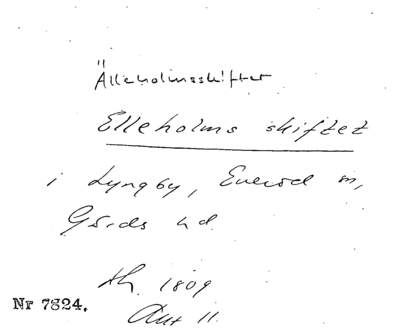 Älleholmsskiftet
Elleholms skiftet
i Lyngby, Everöd sn,
Gärds hd
Ah. 1809
Akt 11.
Nr 7824.